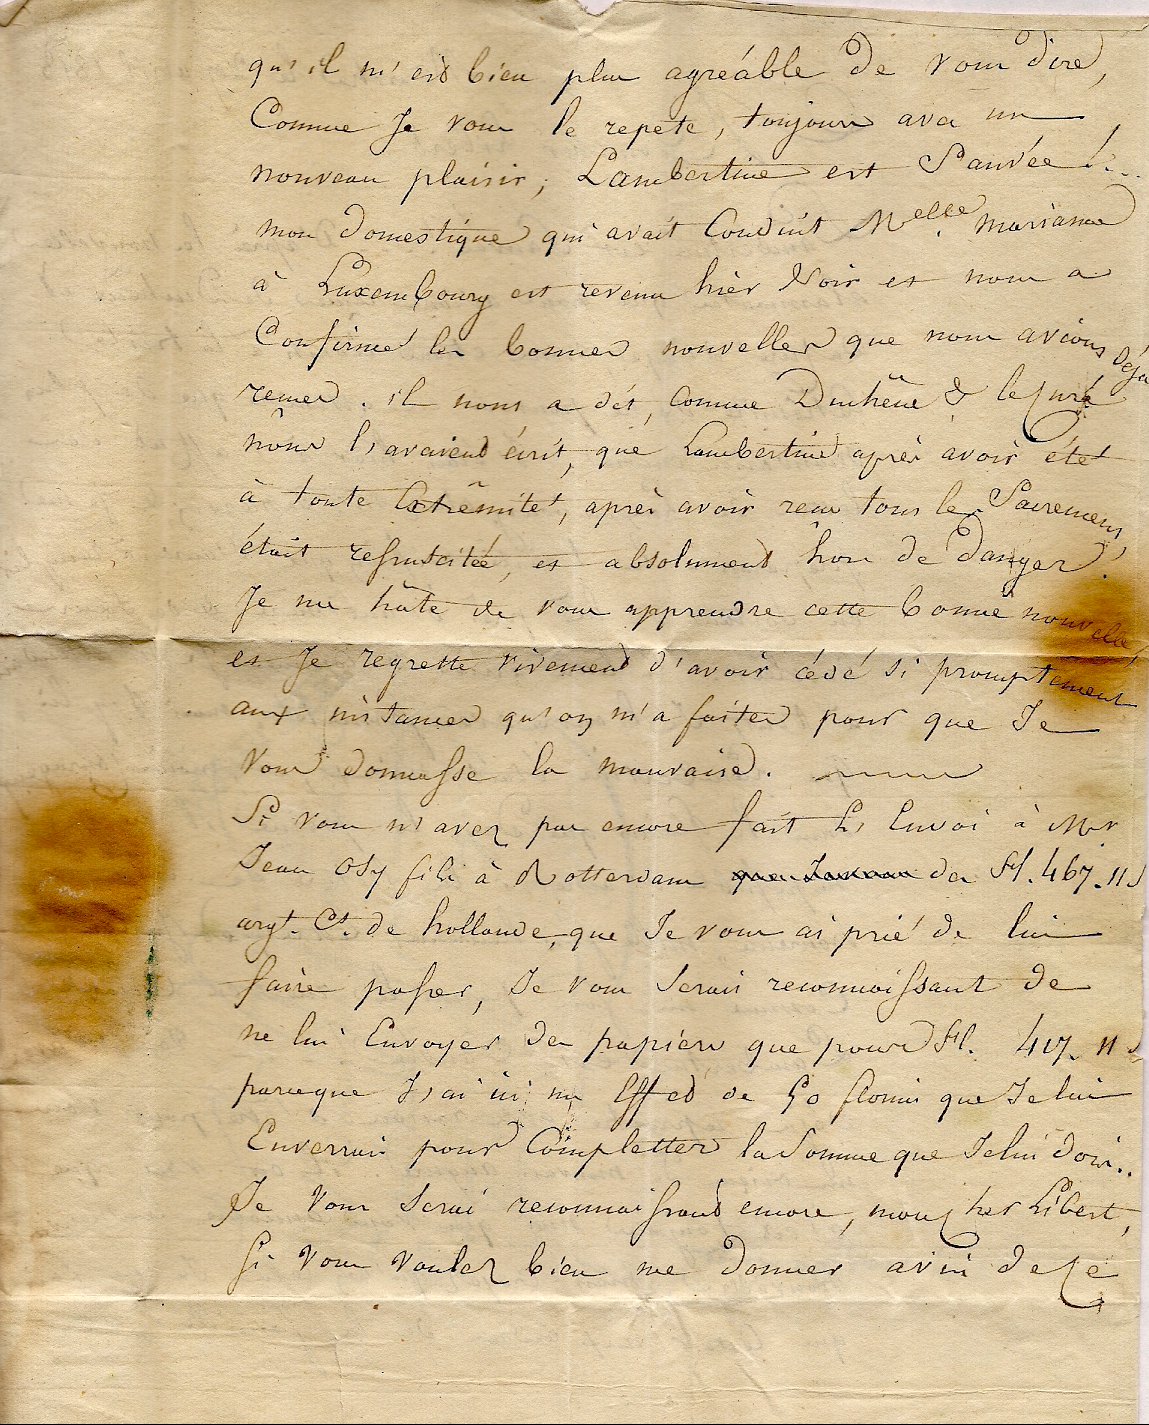 qu'il m'est bien plus agréable de vous dire,
Comme Je vous le repete, toujours avec un
nouveau plaisir, Lambertine est Sauvée !...
mon domestique qui avait Conduit Melle. marianne
à Luxembourg est revenu hièr Soir et nous a
Confirmé les bonnes nouvelles que nous avions déja
reçues. il nous a dit, comme Duchêne & le Curé
nous l'avaient écrit, que Lambertine après avoir été
à toute Extrêmité, après avoir reçu tous les Sacremens,
était ressuscitée, et absolument hors de danger.
Je me hâte de vous apprendre cette bonne nouvelle,
et Je regrette vivement d'avoir cédé si promptement
aux instances qu'on m'a faites pour que Je
Vous donnasse la mauvaise.
Si vous n'avez pas encore fait l'Envoi à Mr
Jean Osy fils à Rotterdam des fl. 467.11 S
argt. Ct. de hollande, que Je vous ai prié de lui
faire passer, Je vous Serais reconnaissant de
ne lui Envoyer des papiers que pour fl. 417. 11 S
parceque J'ai ici un Effet de 50 florins que Je lui
Enverrais pour Complettér la Somme que Je lui dois..
Je Vous Serai reconnaissant encore, mon cher Libert,
Si vous voulez bien me donner avis de ce